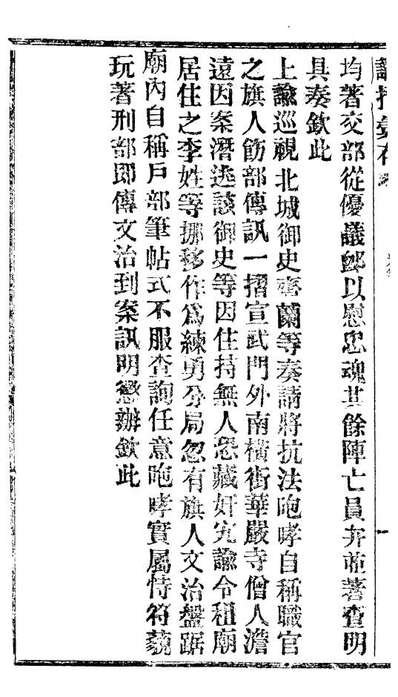 諭摺彙存
均著交部從優議卹以慰忠魂其餘陣亡員弁並著查明
具奏欽此
上諭巡視北城御史寄蘭等奏請將抗法咆哮自稱職官
之旗人飭部傳訊一摺宣武門外南橫街華嚴寺僧人澹
遠因案潛逃該御史等因住持無人恐藏奸宄諭令租廟
居住之李姓等挪移作為練勇公局忽有旗人文治盤踞
廟內自稱戶部筆帖式不服查詢任意咆哮實屬恃符藐
玩著刑部即傳文治到案訊明懲辦欽此